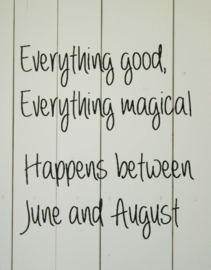 Everything good,
Everything magical
Happens between
June and August